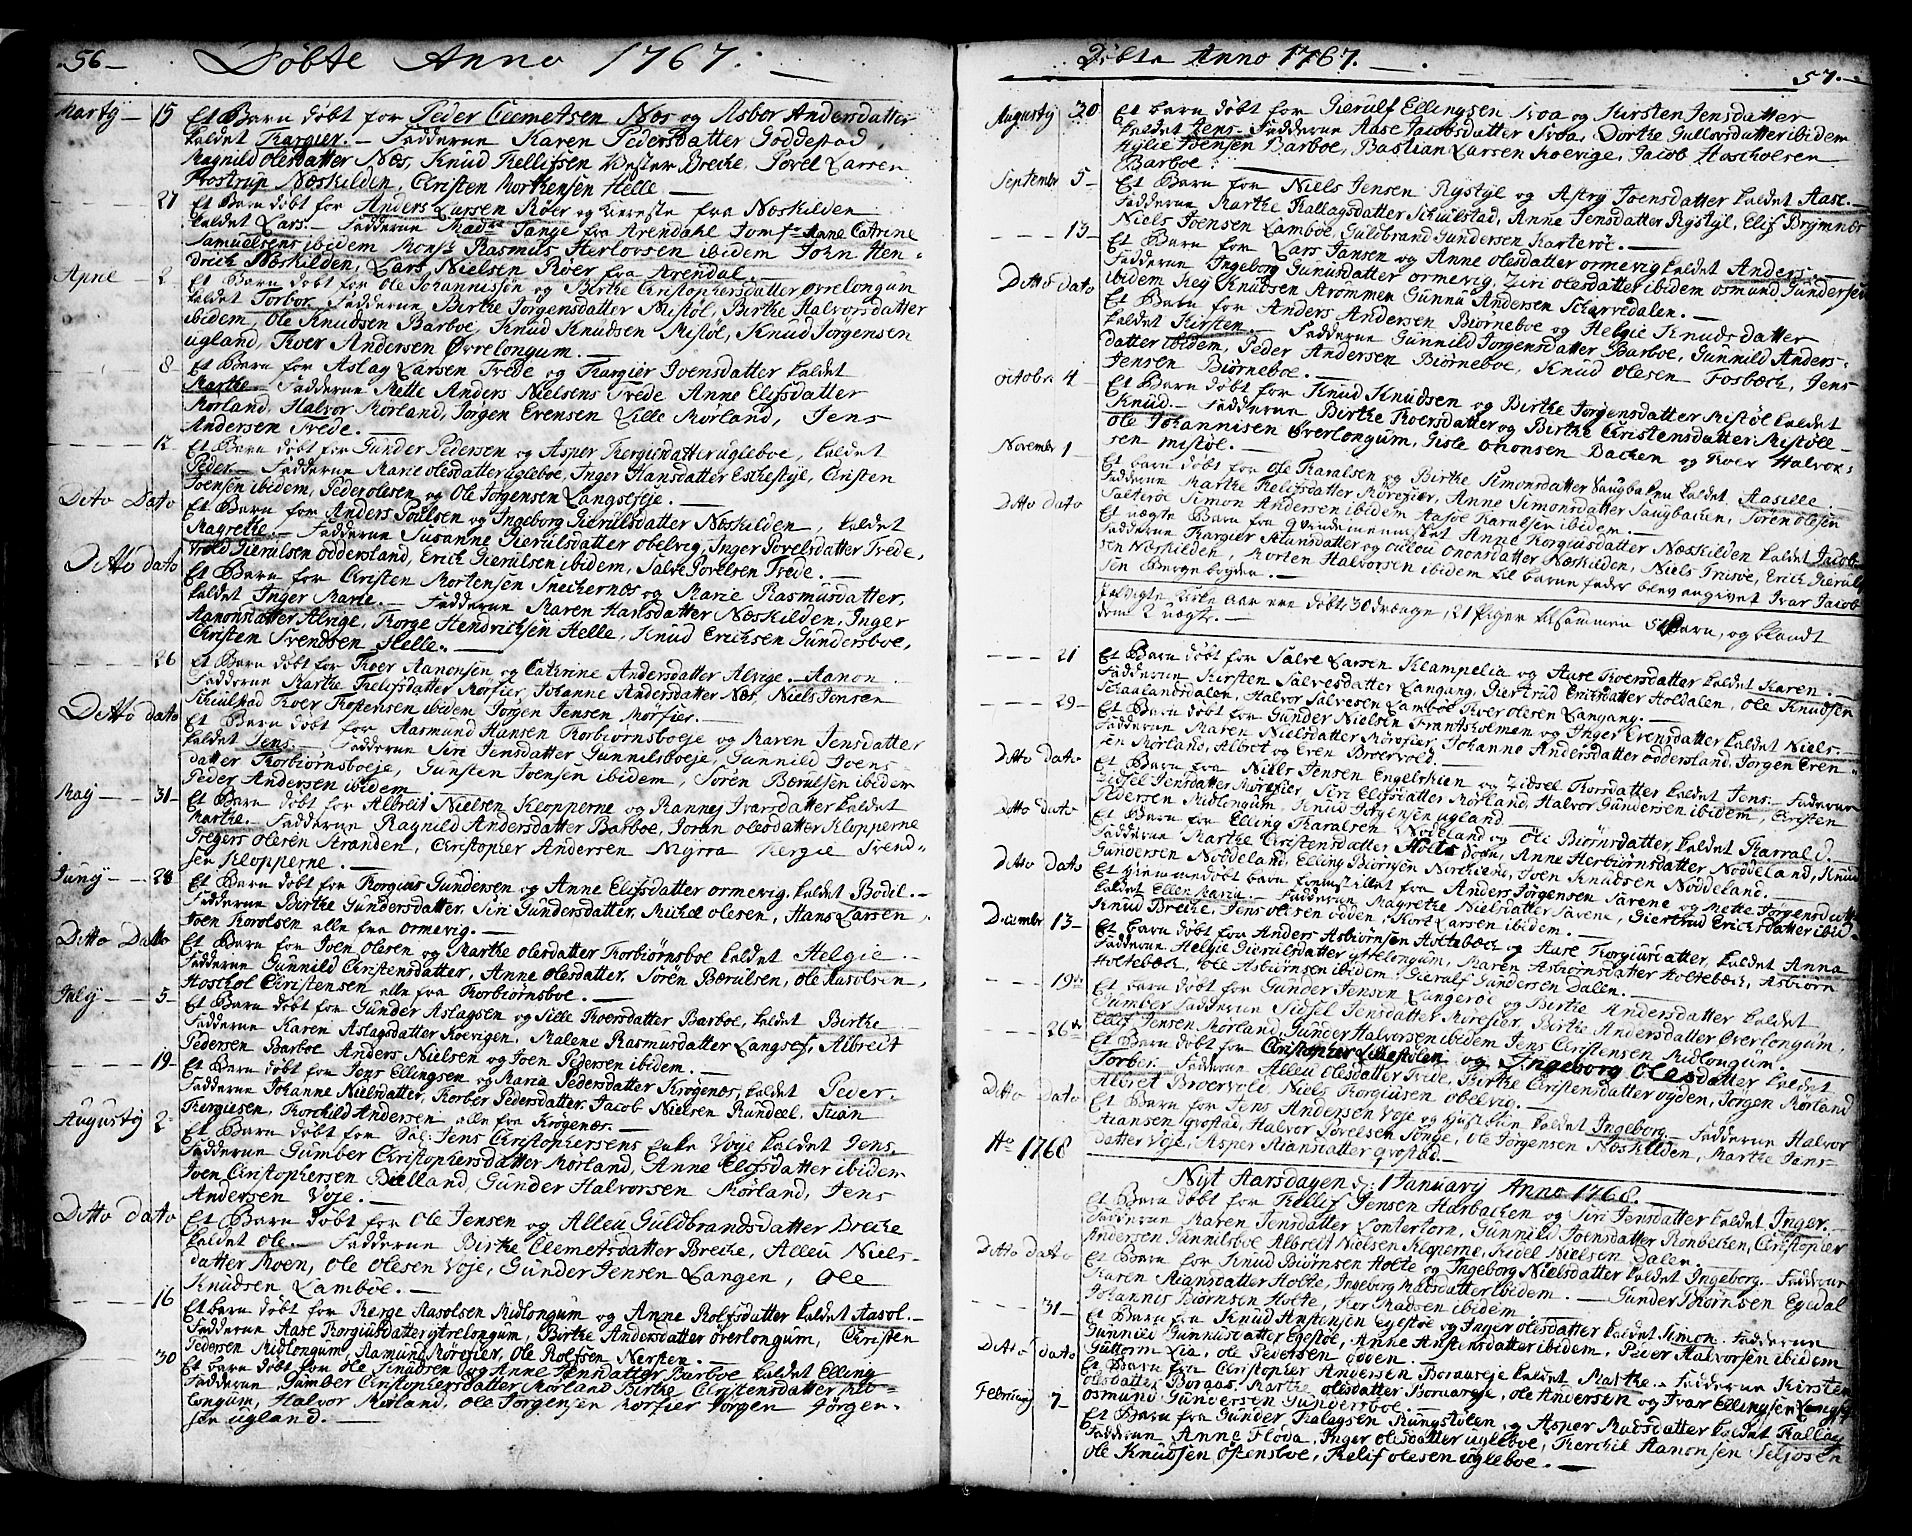 56
Döbte Anno 1767.
Marty 15 Et Barn döbt for Peder Clemetsen Næs og Asbor Andersdatter
kaldet Targier. Fadderne Karen Pedersdatter Goddestad
Magnild Olesdatter Næs, Knud Kellifsen Vester Breike Povel Larsen
Næskilden, Christen Mortensen Helle
27 Et Barn döbt for Anders Larsen Röer og kiereste fra Næskilden
kaldet Lars. Fadderne Mad. Tange fra Arendahl Jomf. Anne Catrine
Samuelsens ibidem Mons. Rasmus Herlovsen ibidem John Hen-
drich Næskilden, Lars Nielsen Röer fra Arendal
2 Et Barn döbt for Ole Johannissön og Birthe Christophersdatter Øvrelongum
kaldet Torbor. Fadderne Birthe Jörgensdatter Mistöl, Birthe Halvorsdatter
ibidem, Ole Knudsen Barboe, Knud Knudsen Mistöl, Knud Jörgensen
ugland, Roer Andersen Øvrelongum.
8 Et Barn for Aslag Larsen Trede og Targier Joensdatter kaldet
Marthe. Fadderne Mette Anders Nielsens Trede Anne Elifsdatter
Mörland, Halvor Mörland, Jörgen Evensen Lille Mörland, Jens
Andersen Trede.
12 Et Barn döbt for Gunder Pedersen og Asper Tergiesdatter ugleboe, kaldet
Peder. Fadderne Marie olesdatter ugleboe, Inger Hansdatter Eschestyl, Christen
Joensen ibidem, Peder olesen og Ole Jörgensen Langseeje.
Dito Dato Et Barn for Anders Poulsen og Ingeborg Gierulsdatter Næskilden, kaldet
Magrethe. Fadderne Susanne Gierulsdatter obelvig, Inger Povelsdatter Trede,
Gierulsen odderstand, Erich Gierulsen ibidem, Salve Povelsen Trede.
Ditto dato Et Barn for Christen Mortensen Snechernæs og Marie Rasmusdatter,
kaldet Inger Marie. Fadderne Maren Hansdatter Næskilden, Inger
Aanonsdatter Alvige, Torge Hendrichsen Helle, Knud Erichsen Gundersboe,
Christen Svendsen Helle.
26 Et Barn döbt for Roer Aanonsen og Cathrine Andersdatter Alvige. Aanon
Fadderne Marthe Thelifsdatter Mörfier, Johanne Andersdatter Næs, Niels Jensen
Schiulstad Roer Jörgen Jensen Mörfier.
Ditto dato Et Barn döbt for Aasmund Hansen Torbiornsboeje og Maren Jensdatter
kaldet Jens. Fadderne Siri Jensdatter Gunnilsboeje, Gunnild Joens-
datter Torbiornsboeje, Gunsten Joensen ibidem, Sören Bærulsen ibidem
Peder Andersen ibidem
May 31 Et Barn döbt for Albreit Nielsen Klopperne og Rannej Ivarsdatter kaldet
Marthe. Fadderne Ragnild Andersdatter Barboe, Joran Olesdatter Klopperne
Gregers Olesen Stranden, Christopher Andersen Myrra Svend-
sen Klopperne.
Juny 28 Et Barn döbt for Torgius Gundersen og Anne Elifsdatter ormevig, kaldet Bodil.
Fadderne Birthe Gundersdatter, Siri Gundersdatter, Michel Olesen, Hans Larsen
Joen Torolsen alle fra ormevig.
Ditto Datto Et Barn for Joen Olsen og Marthe Olesdatter Torbiornsboe kaldet Helgie.
Fadderne Gunnild Christensdatter, Anne Olesdatter, Sören Bærulsen, Ole Aasolsen,
Hoschol Christensen alle fra Torbiornsboe.
July 5 Et Barn döbt for Gunder Aslagsen og Sille Toersdatter Barboe, kaldet Birthe
Fadderne Karen Aslagsdatter Koevigen, Malene Rasmusdatter Langsef, Albredt
Pedersen Barboe Anders Nielsen og Joen Pedersen ibidem.
19 Et Barn döbt for Jens Ellingsen og Maria Pedersdatter Krogenæs, kaldet Peder.
Fadderne Johanne Nielsdatter, Torber Pedersdatter, Jacob Nielsen Rundeel, Juan
Tergiesen, Torchild Andersen alle fra Krogenæs.
Augusty 2 Et Barn döbt for Sal. Jens Christophersens Enke Voje kaldet Jens,
Fadderne Gumber Christophersdatter Mörland, Anne Elofsdatter ibidem
Joen Christophersen Bielland, Gunder Halvorsen Mörland, Jens
Andersen Voje.
Ditto dato Et Barn döbt for Ole Jensen og Alleu Guldbrandsdatter Breike
kaldet Ole. Fadderne Birthe Clemetsdatter Breike, Alleu Niels-
datter Moen, Ole Olesen Voje, Gunder Jensen Langen, Ole
Knudsen Lamböe.
16 Et barn döbt for Terge Aasolsen Midlongum og Anne Rolfsdatter kaldet Aasol.
Fadderne Aase Torgiusdatter Ytrelongum, Birthe Andersdatter Overlongum, Christen
Pedersen Midlongum, Aamund Mörefier, Ole Rolfsen Nersten.
30 Et barn döbt for Ole Knudsen og Anne Jensdatter Barboe kaldet Elling
Fadderne Gumber Christophersdatter Mörland Birthe Christensdatter Mid-
longum, Halvor Mörland, Ole Jörgensen Morfier Jörgen Jörgen-
sen ugland.
Döbte Anno 1767.
57.
Augusty 30 Et barn döbt for Gierulf Ellingsen Froa og Kirsten Jensdatter
kaldet Jens. Fadderne Aase Jacobsdatter Froa, Dorthe Gullovsdatter ibidem
Joensen Barboe, Bastian Larsen Koevige, Jacob Hoscholsen
Barboe.
Septembr 5 Et Barn for Niels Jensen Rystyl og Astry Joensdatter kaldet Aase.
Fadderne Marthe Tallagsdatter Schiulstad, Anne Jensdatter Rystyl, Elif Brymnes
Niels Joensen Lamböe, Guldbrand Gundersen Karteröe.
13 Et Barn for Lars Jansen og Anne Olesdatter ormevig kaldet Anders.
Fadderne Ingeborg Gunnisdatter ormevig, Ziri Olesdatter ibidem osmund Gundersen
ibidem Rej Knudsen Strömmen Gunnu Andersen Scharvedalen.
Ditto dato Et Barn for Anders Andersen Biörneboe og Helgie Knudsdatter
kaldet Kirsten. Fadderne Gunnild Jörgensdatter Barboe, Gunnild Anders-
datter ibidem, Peder Andersen Biörneboe, Knud Olesen Fosbæch, Jens
Jensen Biörneboe.
octobr 4 Et Barn döbt for Knud Knudsen og Birthe Jörgensdatter Mistöl kaldet
Knud. Fadderne Birthe Toersdatter og Birthe Christensdatter Mistöll
Ole Johannisen Øverlongum, Gisle ononsen Dachen og Roer Halvor-
sen mistöl.
Novembr 1 Et barn döbt for Ole Taralsen og Birthe Simonsdatter Saugbachen kaldet Aasille
Fadderne Marthe Thelifsdatter Mörefier, Anne Simonsdatter Saugbachen, Sören Olesen
Salteröe Simon Andersen ibidem Aasoe Taralsen ibidem.
Ditto dato Et uægte Barn fra qvindemennischet Anne Torgiusdatter Næskilden kaldet Jacob
Fadderne Targier og oulou ononsdatter Næskilden, Niels Frisöe, Erich Gieruls
sen Næskilden, Morten Halvorsen ibidem til barne fader blev angivet Ivar Jacob
sen Bergebogden.
Kirke aar ere döbt 30 drænge, 21 Piger tilsammen 51 Barn, og blandt
dem 2 uægte.
21 Et Barn döbt for Salve Larsen Klampelia og Aase Toersdatter kaldet Karen.
Fadderne Kirsten Salvesdatter Langang, Giertrud Erichsdatter Holdalen, Ole Knudsen
Schaalandsdalen, Halvor Salvesen Lamböe Roer olesen Langang.
29 Et Barn döbt for Gunder Nielsen Frantsholmen og Inger Evensdatter kaldet Niels.
Fadderne Maren Nielsdatter Mörefier, Johanne Andersdatter odderstand, Jörgen Even
sen Mörland, Albret og Even Broervold.
Ditto dato Et Barn fra Niels Jensen Engelskien og Zidsel Torsdatter kaldet Jens. Fadderne
Zidsel Jensdatter Mörefier, Siri Elifsdatter Mörland, Halvor Gundersen ibidem, Christen
Pedersen Midlongum, Knud Jörgensen ugland.
Ditto dato Et Barn for Elling Taralsen Nödeland og Öli Biörnsdatter, kaldet Tarrald.
Fadderne Marthe Christensdatter Holts Moen, Anne Herbiörnsdatter Nöddeland, Knud
Gundersen Nöddeland, Elling Biörnsen Norchien, Joen Knudsen Nöddeland.
Ditto dato Et hiemmedöbt barn fremstillet fra Anders Jörgensen Sævene og Mette Jörgensdatter
kaldet Ellen Maria. Fadderne Magrethe Nielsdatter Sævene, Giertrud Erichsdatter ibid-
Knud Breike, Jens Olsen odden, Tore Larsen ibidem.
Decembr 13 Et barn döbt for Anders Asbiörnsen Holtebæch og Aase Torgiusdatter, kaldet Anna
Fadderne Helgie Gierulsdatter Yttelongum, Maren Asbiörnsdatter Holtebæch, Asbiörn
Holtebæch, Ole Asbiörnsen ibidem, Gieralf Gundersen Dalen.
19de Et barn döbt for Gunder Jensen Langeröe og Birthe Andersdatter kaldet
Gumber Fadderne Sidsel Jensdatter Mörefier, Birthe Andersdatter Overlongum,
Ellef Jensen Mörland, Gunder Halvorsen ibidem Jens Christensen Midlongum,
26de Et Barn döbt for Christopher Lillestölen og Ingeborg Olesdatter kaldet
Torber. Fadderne Alleu Olesdatter Trede, Birthe Christensdatter ogden, Jörgen Mörland
Albret Broervold, Niels Torgiusen obelvig.
Ditto dato Et Barn döbt for Jens Andersen Voje og Hustrue kaldet Ingeborg. Fadderne Halvor
Aiansen qvostad, Halvor Povelsen Songe, Ole Jörgensen Næskilden, Marthe Jans-
datter Voje, Asper Aiansdatter qvostad.
Ao 1768
Nyt Aarsdagen d: 1 January Anno 1768.
Et Barn döbt for Thellif Jensen Harbachen og Siri Jensdatter kaldet Inger.
Fadderne Maren Jensdatter Lontertorn, Gunnild Joensdatter Ronbechen, Christopher
Andersen Gunnilsboe Albreit Nielsen Kloperne, Kidel Nielsen Dalen
Ditto dato Et Barn for Knud Biörnsen Holte og Ingeborg Nielsdatter kaldet Ingeborg. Fadderne
Karen Aiansdatter Holte, Ingeborg Madsdatter ibidem. Gunder Biörnsen Egedal
Johannis Biörnsen Holte, Tor Madsen ibidem
31 Et Barn for Knud Anstensen Egestöe og Inger olesdatter kaldet Simon. Fadderne
Gunnild Gunnisdatter Egestöe, Anne Anstensdatter ibidem, Peder Halvorsen ibidem
Guttorm Lia, Ole Pedersen odden.
Ditto dato Et Barn for Christopher Andersen Boraaseje kaldet Marthe. Fadderne Kirsten
olesdatter Boraas, Marthe olesdatter Boraas, ole Andersen og Ivar Ellingsen
osmund Gundersen Gundersboe.
February 7 Et Barn fra Gunder Tralagsen Rungstölen og Asper Madsdatter kaldet Tallag
Fadderne Anne Floda, Inger olesdatter ugleboe, Torchil Aanonsen Seljosen
Ole Knudsen ostensboe, Thelif olesen ugleboe.